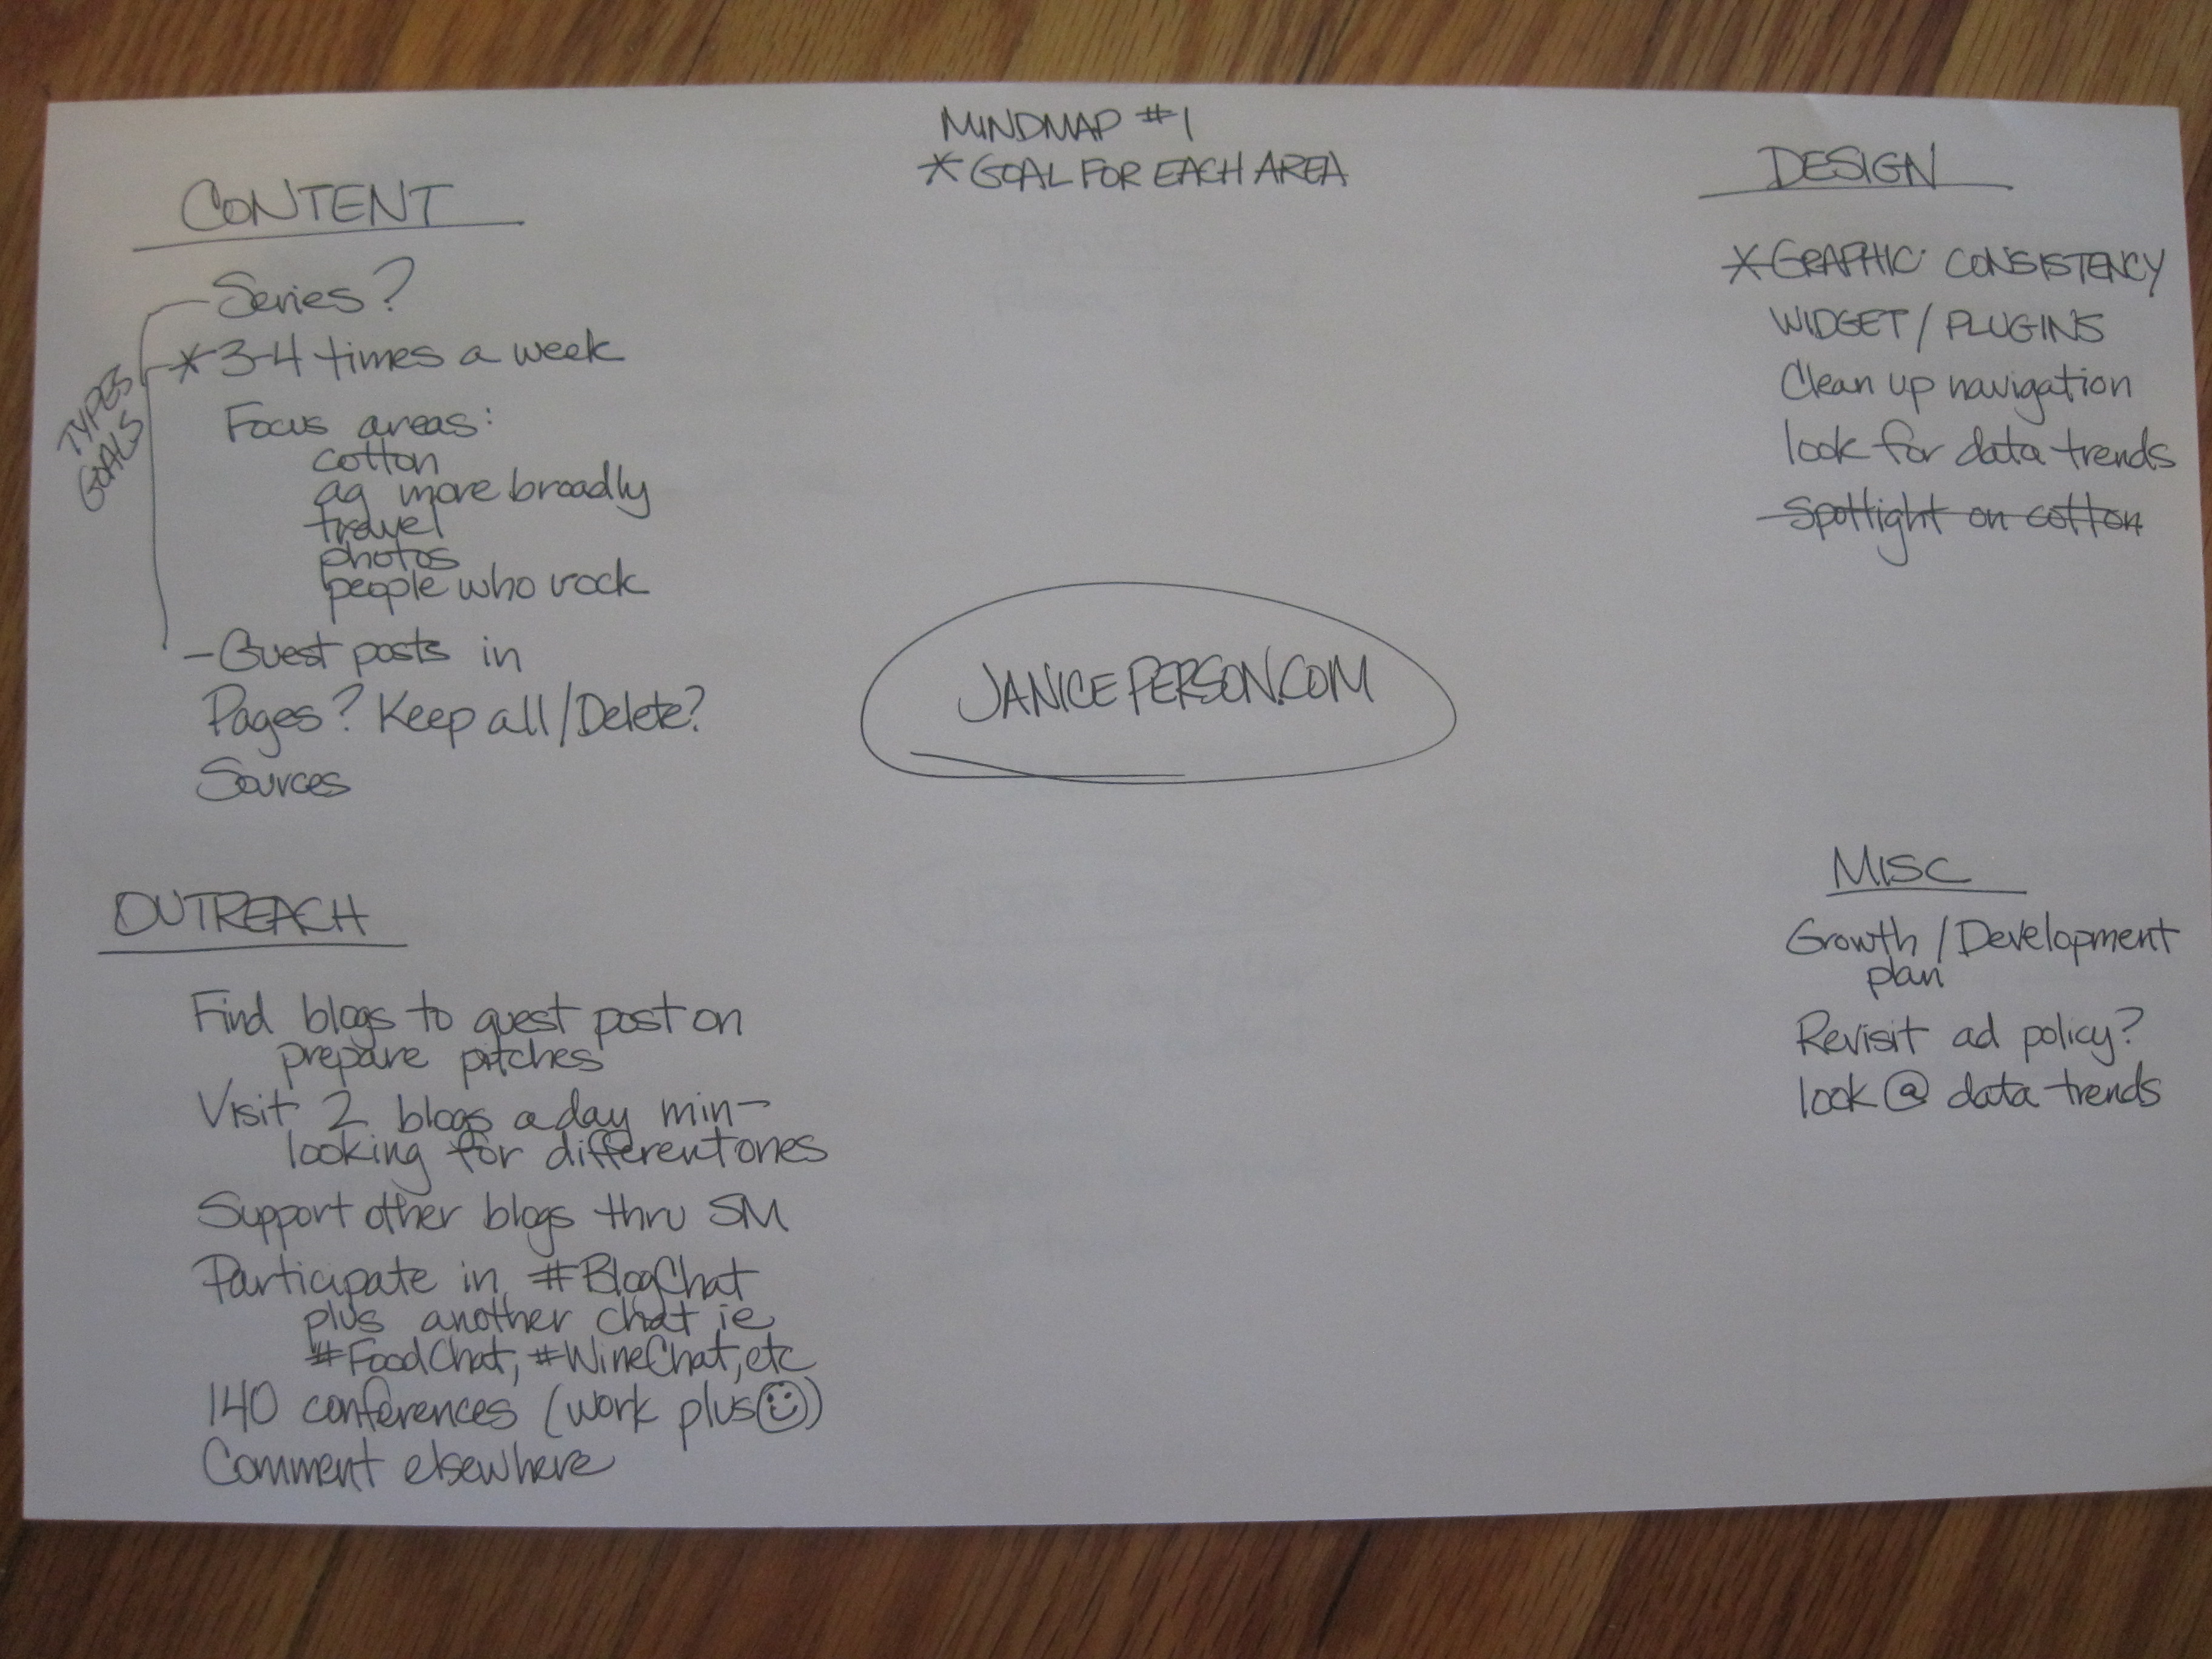 MINDMAP #1
* GOAL FOR EACH AREA
CONTENT
Series?
* 3-4 times a week
TYPES
GOALS
Focus areas:
cotton
ag more broadly
travel
photos
people who rock
- Guest posts in
Pages? Keep all/Delete?
Sources
OUTREACH
Find blogs to guest post on
prepare pitches
Visit 2 blogs a day min -
looking for different ones
Support other blogs thru SM
Participate in #BlogChat
plus another chat ie
#FoodChat, #WineChat, etc
140 conferences (work plus ☺)
Comment elsewhere
JANICEPERSON.COM
DESIGN
* GRAPHIC CONSISTENCY
WIDGET / PLUGINS
Clean up navigation
look for data trends
Spotlight on cotton
MISC
Growth / Development
plan
Revisit ad policy?
look @ data trends